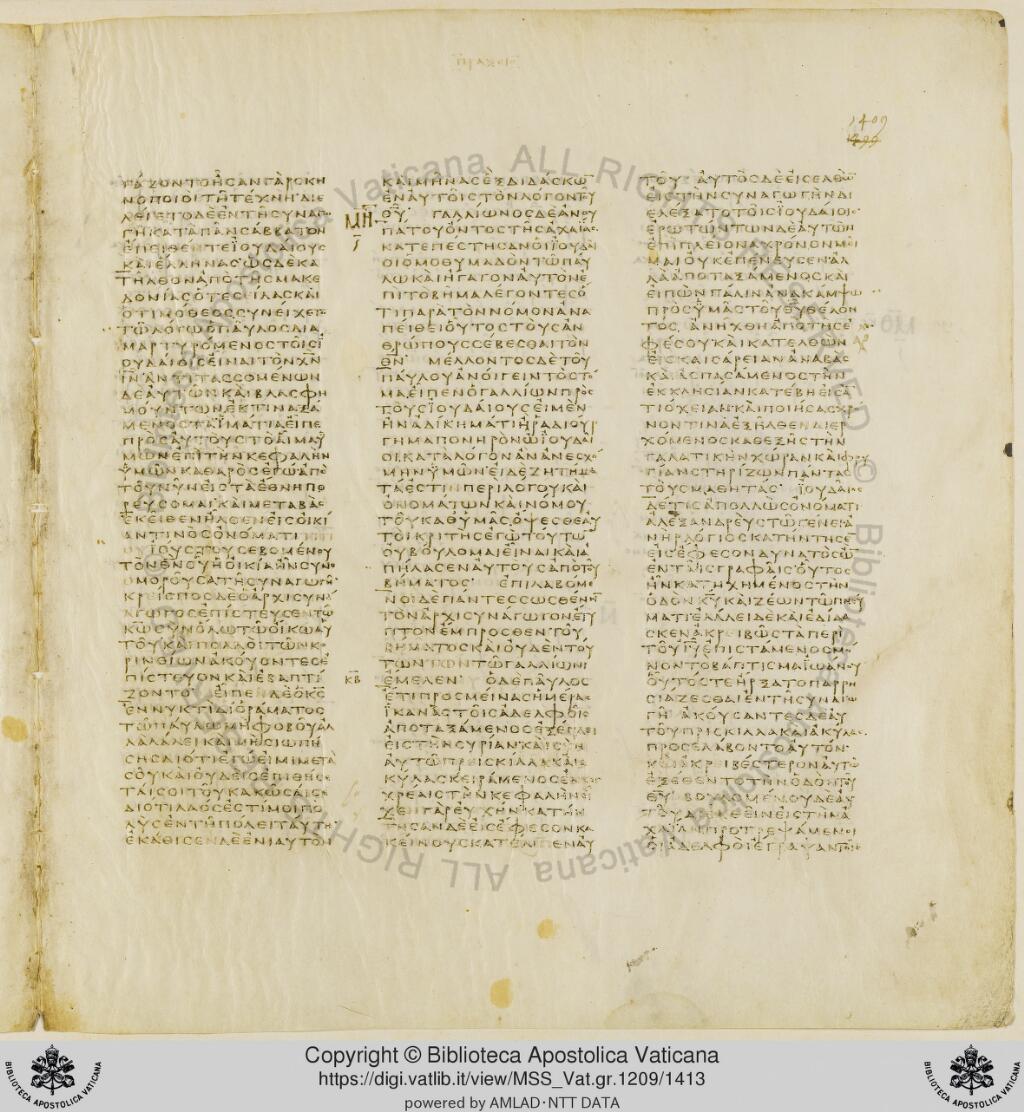 ΠΡΑΞΕΙΣ
1409
ΓΑΖΟΝΤΟΗΣΑΝΓΑΡΣΚΗ
ΝΟΠΟΙΟΙΤΗΤΕΧΝΗΔΙΕ
ΛΕΓΕΤΟΔΕΕΝΤΗΣΥΝΑΓΩ
ΓΗΚΑΤΑΠΑΝΣΑΒΒΑΤΟΝ
ΕΠΕΙΘΕΝΤΕΙΟΥΔΑΙΟΥΣ
ΚΑΙΕΛΛΗΝΑΣΩΣΔΕΚΑ
ΤΗΛΘΟΝΑΠΟΤΗΣΜΑΚΕ
ΔΟΝΙΑΣΟΤΕΣΕΙΛΑΣΚΑΙ
ΟΤΙΜΟΘΕΟΣΣΥΝΕΙΧΕΤΟ
ΤΩΛΟΓΩΟΠΑΥΛΟΣΔΙΑ
ΜΑΡΤΥΡΟΜΕΝΟΣΤΟΙΣΙ
ΟΥΔΑΙΟΙΣΕΙΝΑΙΤΟΝΧΝ
ΙΝΑΝΤΙΤΑΣΣΟΜΕΝΩΝ
ΔΕΑΥΤΩΝΚΑΙΒΛΑΣΦΗ
ΜΟΥΝΤΩΝΕΚΤΙΝΑΞΑ
ΜΕΝΟΣΤΑΙΜΑΤΙΑΕΙΠΕ
ΠΡΟΣΑΥΤΟΥΣΤΟΑΙΜΑΥ
ΜΩΝΕΠΙΤΗΝΚΕΦΑΛΗΝ
ΥΜΩΝΚΑΘΑΡΟΣΕΓΩΑΠΟ
ΤΟΥΝΥΝΕΙΣΤΑΕΘΝΗΠΟ
ΡΕΥΣΟΜΑΙΚΑΙΜΕΤΑΒΑΣ
ΕΚΕΙΘΕΝΗΛΘΕΝΕΙΣΟΙΚΙ
ΑΝΤΙΝΟΣΟΝΟΜΑΤΙΤΙΤΙ
ΟΥΙΟΥΣΤΟΥΣΕΒΟΜΕΝΟΥ
ΤΟΝΘΝΟΥΗΟΙΚΙΑΗΝΣΥΝΟ
ΜΟΡΟΥΣΑΤΗΣΥΝΑΓΩΓΗ
ΚΡΕΙΣΠΟΣΔΕΟΑΡΧΙΣΥΝΑ
ΓΩΓΟΣΕΠΙΣΤΕΥΣΕΝΤΩ
ΚΩΣΥΝΟΛΩΤΩΟΙΚΩΑΥ
ΤΟΥΚΑΙΠΟΛΛΟΙΤΩΝΚΟ
ΡΙΝΘΙΩΝΑΚΟΥΟΝΤΕΣΕ
ΠΙΣΤΕΥΟΝΚΑΙΕΒΑΠΤΙ
ΖΟΝΤΟ ΕΙΠΕΝΔΕΟΚΣ
ΕΝΝΥΚΤΙΔΙΟΡΑΜΑΤΟΣ
ΤΩΠΑΥΛΩΜΗΦΟΒΟΥΑΛ
ΛΑΛΑΛΕΙΚΑΙΜΗΣΙΩΠΗ
ΣΗΣΔΙΟΤΙΕΓΩΕΙΜΙΜΕΤΑ
ΣΟΥΚΑΙΟΥΔΕΙΣΕΠΙΘΗΣΕ
ΤΑΙΣΟΙΤΟΥΚΑΚΩΣΑΙΣΕ
ΔΙΟΤΙΛΑΟΣΕΣΤΙΜΟΙΠΟ
ΛΥΣΕΝΤΗΠΟΛΕΙΤΑΥΤΗ
ΕΚΑΘΙΣΕΝΔΕΕΝΙΑΥΤΟΝ
ΚΑΙΜΗΝΑΣΕΞΔΙΔΑΣΚΩ
ΕΝΑΥΤΟΙΣΤΟΝΛΟΓΟΝΤΟΥ
ΜΗ
Ι
ΘΥ ΓΑΛΛΙΩΝΟΣΔΕΑΝΘΥ
ΠΑΤΟΥΟΝΤΟΣΤΗΣΑΧΑΙΑΣ
ΚΑΤΕΠΕΣΤΗΣΑΝΟΙΙΟΥΔΑΙ
ΟΙΟΜΟΘΥΜΑΔΟΝΤΩΠΑΥ
ΛΩΚΑΙΗΓΑΓΟΝΑΥΤΟΝΕ
ΠΙΤΟΒΗΜΑΛΕΓΟΝΤΕΣΟ
ΤΙΠΑΡΑΤΟΝΝΟΜΟΝΑΝΑ
ΠΕΙΘΕΙΟΥΤΟΣΤΟΥΣΑΝ
ΘΡΩΠΟΥΣΣΕΒΕΣΘΑΙΤΟΝ
ΘΝ ΜΕΛΛΟΝΤΟΣΔΕΤΟΥ
ΠΑΥΛΟΥΑΝΟΙΓΕΙΝΤΟΣΤΟ
ΜΑΕΙΠΕΝΟΓΑΛΛΙΩΝΠΡΟΣ
ΤΟΥΣΙΟΥΔΑΙΟΥΣΕΙΜΕΝ
ΗΝΑΔΙΚΗΜΑΤΙΗΡΑΔΙΟΥΡ
ΓΗΜΑΠΟΝΗΡΟΝΩΙΟΥΔΑΙ
ΟΙΚΑΤΑΛΟΓΟΝΑΝΑΝΕΣΧΟ
ΜΗΝΥΜΩΝΕΙΔΕΖΗΤΗΜΑ
ΤΑΕΣΤΙΝΠΕΡΙΛΟΓΟΥΚΑΙ
ΟΝΟΜΑΤΩΝΚΑΙΝΟΜΟΥ
ΤΟΥΚΑΘΥΜΑΣΟΨΕΣΘΕΑΥ
ΤΟΙΚΡΙΤΗΣΕΓΩΤΟΥΤΩ
ΟΥΒΟΥΛΟΜΑΙΕΙΝΑΙΚΑΙΑ
ΠΗΛΑΣΕΝΑΥΤΟΥΣΑΠΟΤΟΥ
ΒΗΜΑΤΟΣ ΕΠΙΛΑΒΟΜΕ
ΝΟΙΔΕΠΑΝΤΕΣΣΩΣΘΕΝΗ
ΤΟΝΑΡΧΙΣΥΝΑΓΩΓΟΝΕΤΥ
ΠΤΟΝΕΜΠΡΟΣΘΕΝΤΟΥ
ΒΗΜΑΤΟΣΚΑΙΟΥΔΕΝΤΟΥ
ΤΩΝΤΩΓΑΛΛΙΩΝΙ
ΚΒ
ΕΜΕΛΕΝ ΟΔΕΠΑΥΛΟΣ
ΕΤΙΠΡΟΣΜΕΙΝΑΣΗΜΕΡΑΣ
ΙΚΑΝΑΣΤΟΙΣΑΔΕΛΦΟΙΣ
ΑΠΟΤΑΞΑΜΕΝΟΣΕΞΕΠΛΕΙ
ΕΙΣΤΗΝΣΥΡΙΑΝΚΑΙΣΥΝ
ΑΥΤΩΠΡΕΙΣΚΙΛΛΑΚΑΙΑ
ΚΥΛΑΣΚΕΙΡΑΜΕΝΟΣΕΝΚΕ
ΧΡΕΑΙΣΤΗΝΚΕΦΑΛΗΝΕΙ
ΧΕΝΓΑΡΕΥΧΗΝΚΑΤΗΝ
ΤΗΣΑΝΔΕΕΙΣΕΦΕΣΟΝΚΑ
ΚΕΙΝΟΥΣΚΑΤΕΛΙΠΕΝΑΥ
ΤΟΥΑΥΤΟΣΔΕΕΙΣΕΛΘΩ
ΕΙΣΤΗΝΣΥΝΑΓΩΓΗΝΔΙ
ΕΛΕΞΑΤΟΤΟΙΣΙΟΥΔΑΙΟΙΣ
ΕΡΩΤΩΝΤΩΝΔΕΑΥΤΩΝ
ΕΠΙΠΛΕΙΟΝΑΧΡΟΝΟΝΜΙ
ΝΑΙΟΥΚΕΠΕΝΕΥΣΕΝΑΛ
ΛΑΑΠΟΤΑΞΑΜΕΝΟΣΚΑΙ
ΕΙΠΩΝΠΑΛΙΝΑΝΑΚΑΜΨΩ
ΠΡΟΣΥΜΑΣΤΟΥΘΥΘΕΛΟΝ
ΤΟΣΑΝΗΧΘΗΑΠΟΤΗΣΕ
ΦΕΣΟΥΚΑΙΚΑΤΕΛΘΩΝ
ΕΙΣΚΑΙΣΑΡΕΙΑΝΑΝΑΒΑΣ
ΚΑΙΑΣΠΑΣΑΜΕΝΟΣΤΗΝ
ΕΚΚΛΗΣΙΑΝΚΑΤΕΒΗΕΙΣΑ
ΤΙΟΧΕΙΑΝΚΑΙΠΟΙΗΣΑΣΧΡΟ
ΝΟΝΤΙΝΑΕΞΗΛΘΕΝΔΙΕΡ
ΧΟΜΕΝΟΣΚΑΘΕΞΗΣΤΗΝ
ΓΑΛΑΤΙΚΗΝΧΩΡΑΝΚΑΙΦΡΥ
ΓΙΑΝΣΤΗΡΙΖΩΝΠΑΝΤΑΣ
ΤΟΥΣΜΑΘΗΤΑΣ ΙΟΥΔΑΙΟΣ
ΔΕΤΙΣΑΠΟΛΛΩΣΟΝΟΜΑΤΙ
ΑΛΕΞΑΝΔΡΕΥΣΤΩΓΕΝΕΙΑ
ΝΗΡΛΟΓΙΟΣΚΑΤΗΝΤΗΣΕ
ΕΙΣΕΦΕΣΟΝΔΥΝΑΤΟΣΩ
ΕΝΤΑΙΣΓΡΑΦΑΙΣΟΥΤΟΣ
ΗΝΚΑΤΗΧΗΜΕΝΟΣΤΗΝ
ΟΔΟΝΚΥΚΑΙΖΕΩΝΤΩΠΝΕΥ
ΜΑΤΙΕΛΑΛΕΙΚΑΙΕΔΙΔΑ
ΣΚΕΝΑΚΡΕΙΒΩΣΤΑΠΕΡΙ
ΤΟΥΙΥΕΠΙΣΤΑΜΕΝΟΣΜΟ
ΝΟΝΤΟΒΑΠΤΙΣΜΑΙΩΑΝΟΥ
ΟΥΤΟΣΤΕΗΡΞΑΤΟΠΑΡΡΗ
ΣΙΑΖΕΣΘΑΙΕΝΤΗΣΥΝΑΓΩ
ΓΗΑΚΟΥΣΑΝΤΕΣΔΕΑΥ
ΤΟΥΠΡΙΣΚΙΛΛΑΚΑΙΑΚΥΛΑΣ
ΠΡΟΣΕΛΑΒΟΝΤΟΑΥΤΟΝ
ΚΑΙΑΚΡΕΙΒΕΣΤΕΡΟΝΑΥΤΩ
ΕΞΕΘΕΝΤΟΤΗΝΟΔΟΝΤΟΥ
ΘΥ ΒΟΥΛΟΜΕΝΟΥΔΕΑΥ
ΤΟΥΔΙΕΛΘΕΙΝΕΙΣΤΗΝΑ
ΧΑΙΑΝΠΡΟΤΡΕΨΑΜΕΝΟΙ
ΟΙΑΔΕΛΦΟΙΕΓΡΑΨΑΝΤΟΙΣ
Copyright © Biblioteca Apostolica Vaticana
https://digi.vatlib.it/view/MSS_Vat.gr.1209/1413
powered by AMLAD·NTT DATA